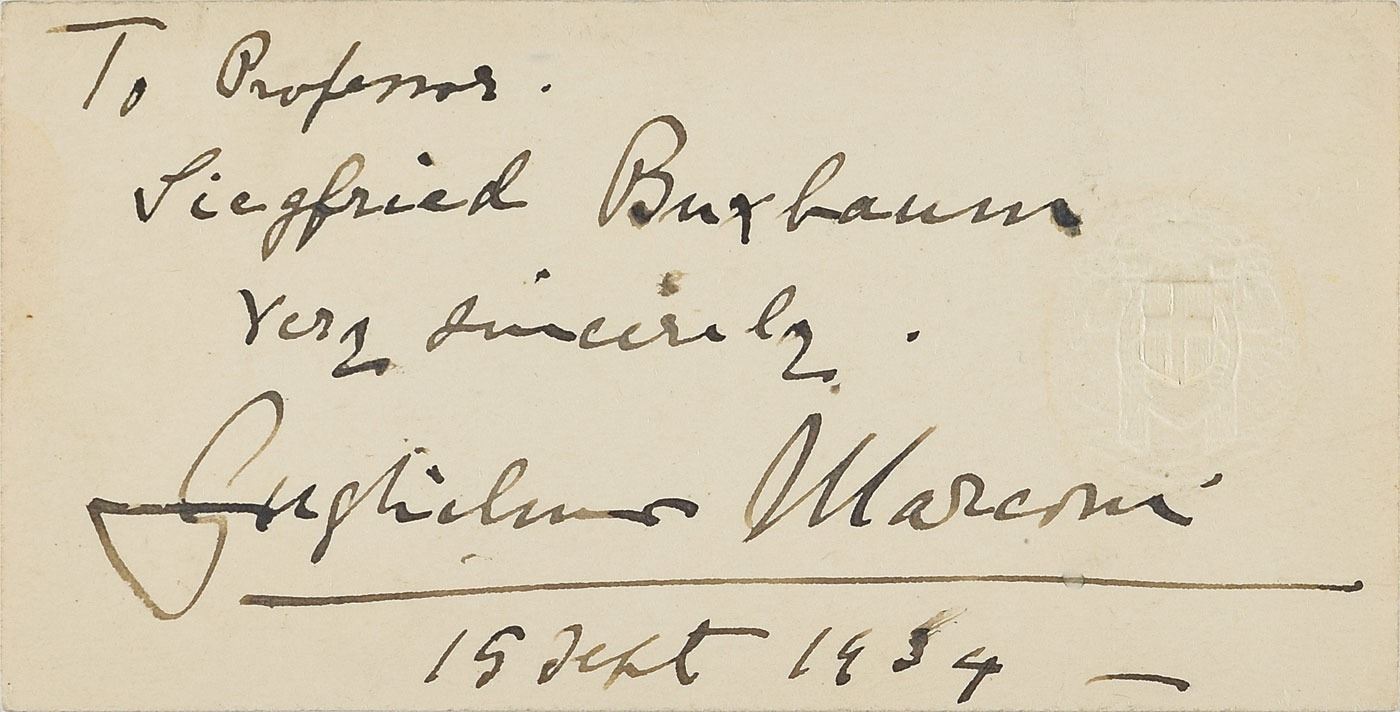 To Professor.
Siegfried Buxbaum
Very sincerely.
Guglielmo Marconi
15 Sept 1934 —